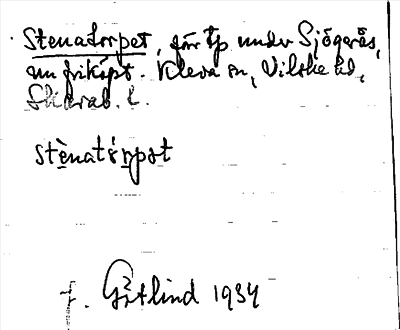 Stenatorpet, förr tp under Sjögerås,
nu friköpt. Kleva sn, Vilske hd,
Skarab. l.
stènatårpət
f. Götlind 1934